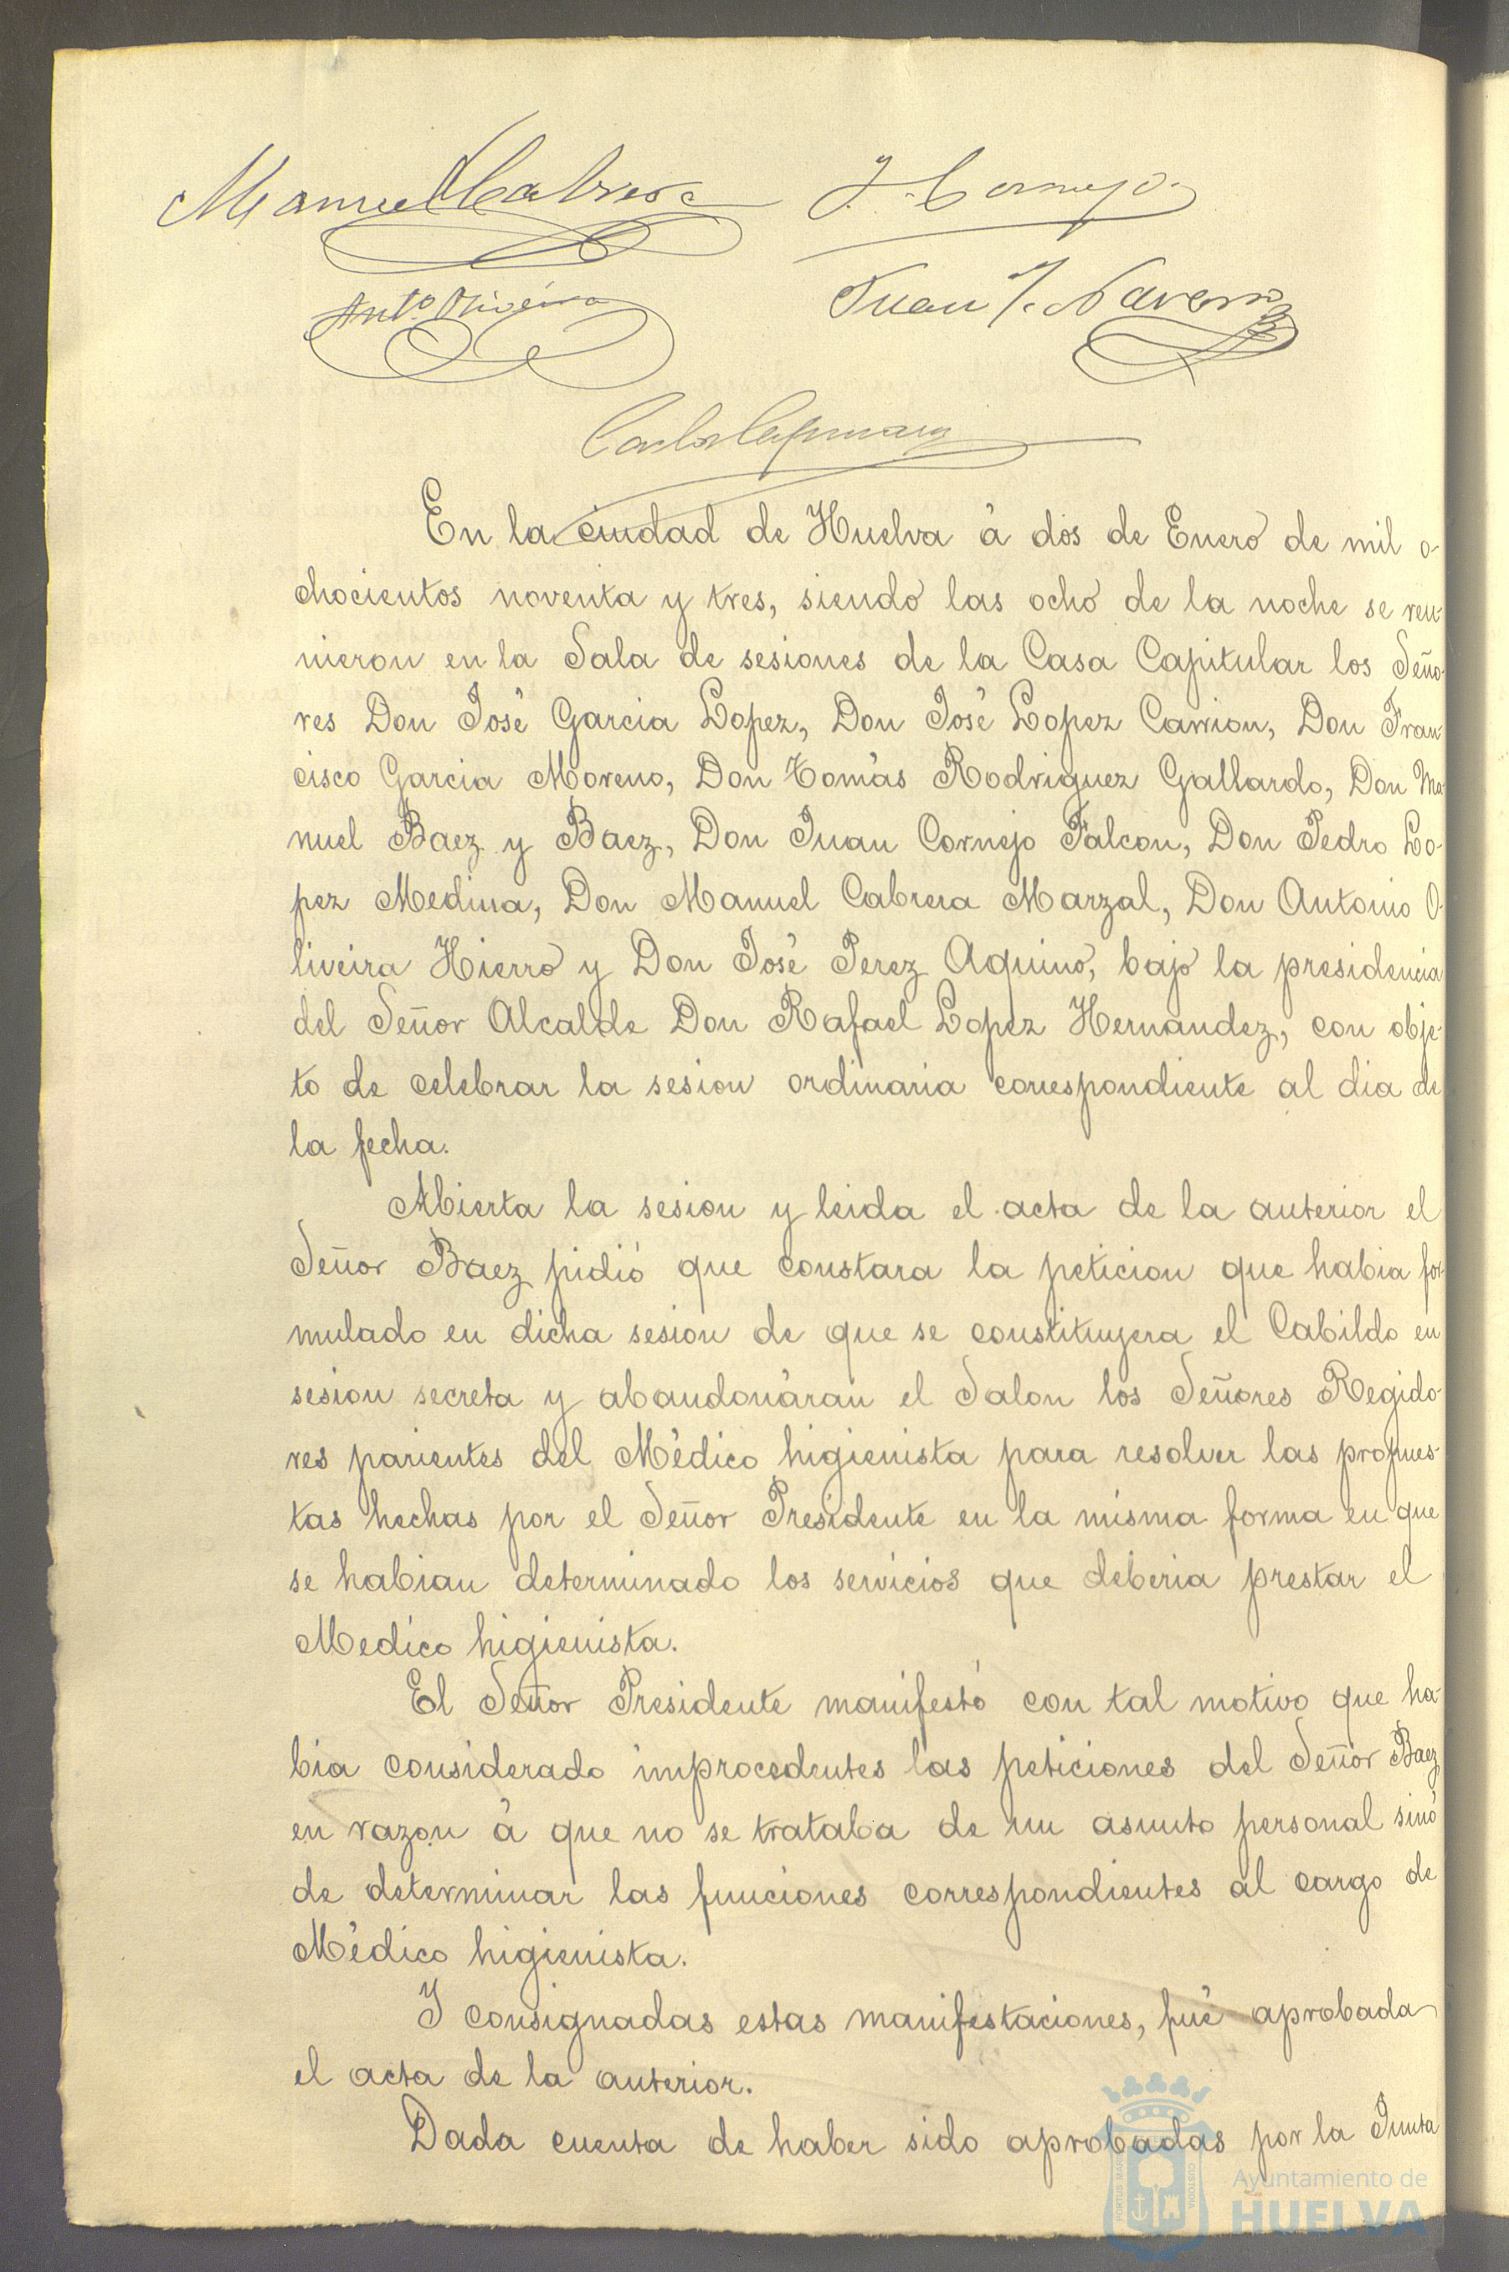 Manuel Cabrera
J. Cornejo
Antº Oliveira
Juan J. Navarro
Carlos
En la ciudad de Huelva á dos de Enero de mil o-
chocientos noventa y tres, siendo las ocho de la noche se reu-
nieron en la Sala de sesiones de la Casa Capitular los Seño-
res Don José Garcia Lopez, Don José Lopez Carrion, Don Fran-
cisco Garcia Moreno, Don Tomás Rodriguez Gallardo, Don Ma-
nuel Baez y Baez, Don Juan Cornejo Falcon, Don Pedro Lo-
pez Medina, Don Manuel Cabrera Marzal, Don Antonio O-
liveira Hierro y Don José Perez Aquino, bajo la presidencia
del Señor Alcalde Don Rafael Lopez Hernandez, con obje-
to de celebrar la sesion ordinaria correspondiente al dia de
la fecha.
Abierta la sesion y leida el acta de la anterior el
Señor Baez pidió que constara la peticion que habia for-
mulado en dicha sesion de que se constituyera el Cabildo en
sesion secreta y abandonáran el Salon los Señores Regido-
res parientes del Médico higienista para resolver las propues-
tas hechas por el Señor Presidente en la misma forma en que
se habian determinado los servicios que deberia prestar el
Medico higienista.
El Señor Presidente manifestó con tal motivo que ha-
bia considerado improcedentes las peticiones del Señor Baez
en razon á que no se trataba de un asunto personal sinó
de determinar las funciones correspondientes al cargo de
Médico higienista.
Y consignadas estas manifestaciones, fué aprobada
el acta de la anterior.
Dada cuenta de haber sido aprobadas por la Junta
Ayuntamiento de
HUELVA